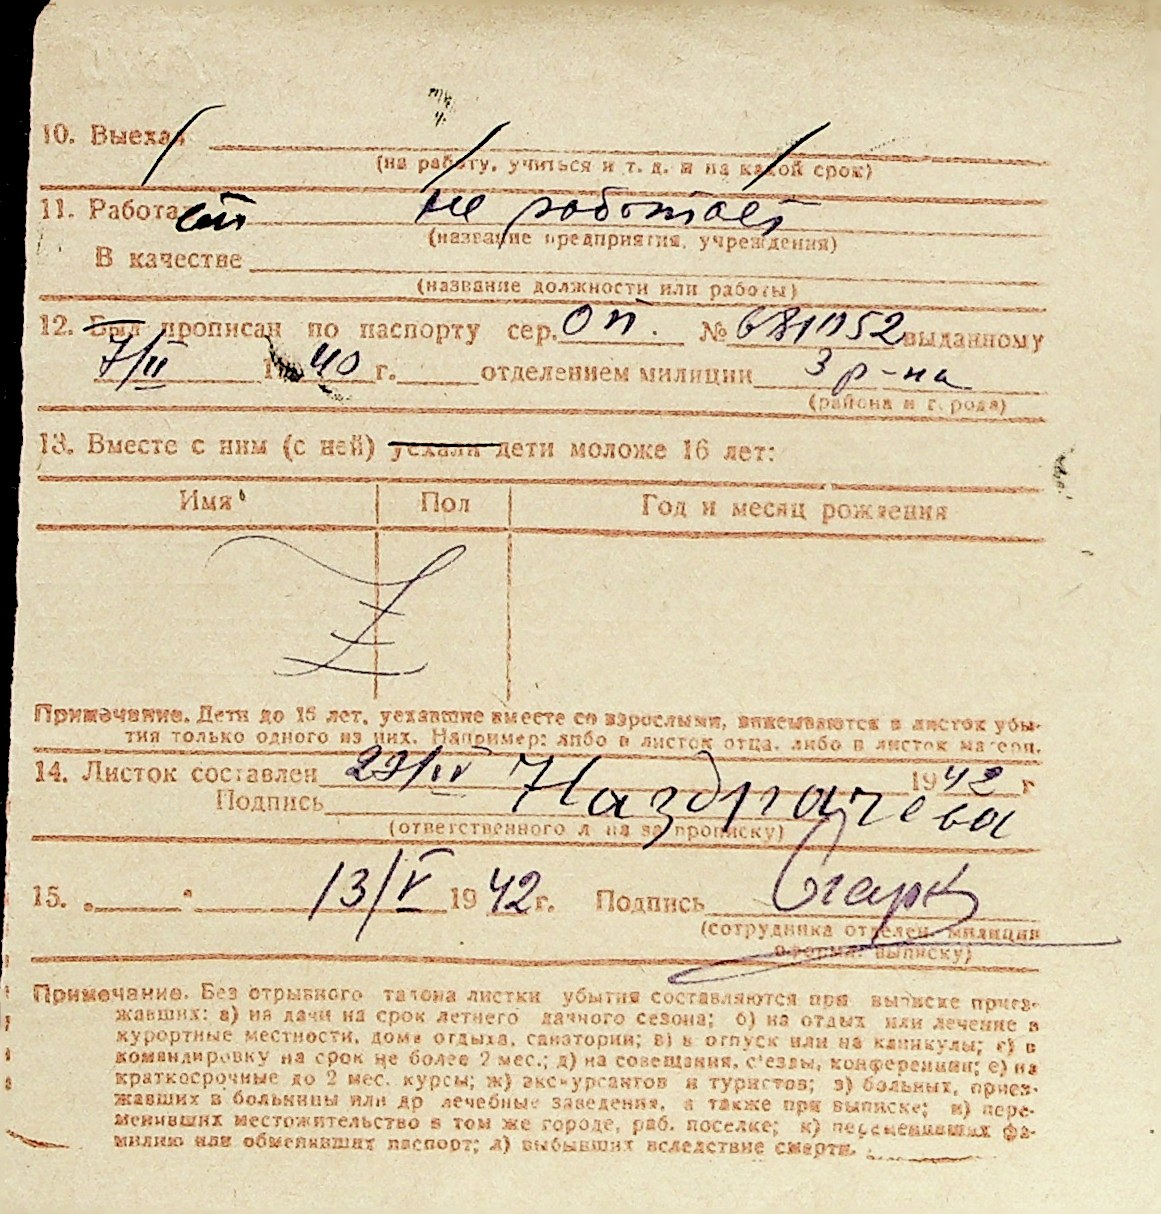 10. Выехал
(на работу, учиться и т. д. и на какой срок)
11. Работает не работает
(название предприятия, учреждения)
В качестве
(название должности или работы)
12. Был прописан по паспорту сер. ОП. № 681052 выданному
7/II 1940 г. отделением милиции 3 р-на
(района и города)
13. Вместе с ним (с ней) уехали дети моложе 16 лет:
Имя Пол Год и месяц рождения
Примечание. Дети до 16 лет, уехавшие вместе со взрослыми, вписываются в листок убы-
тия только одного из них. Например: либо в листок отца, либо в листок матери.
14. Листок составлен 29/IV 1942 г
Подпись Наздрачева
(ответственного л на за прописку)
15. „ “ 13/V 1942 г. Подпись
(сотрудника отделен. милиции
оформл. выписку)
Примечание. Без отрывного талона листки убытия составляются при выписке приез-
жавших: а) на дачи на срок летнего дачного сезона; б) на отдых или лечение в
курортные местности, дома отдыха, санатории; в) в отпуск или на каникулы; г) в
командировку на срок не более 2 мес.; д) на совещания, с'езды, конференции; е) на
краткосрочные до 2 мес. курсы; ж) экскурсантов и туристов; з) больных, приез-
жавших в больницы или др лечебные заведения, а также при выписке; и) пере-
менивших местожительство в том же городе, раб. поселке; к) переменивших фа-
милию или обменявших паспорт; л) выбывших вследствие смерти.